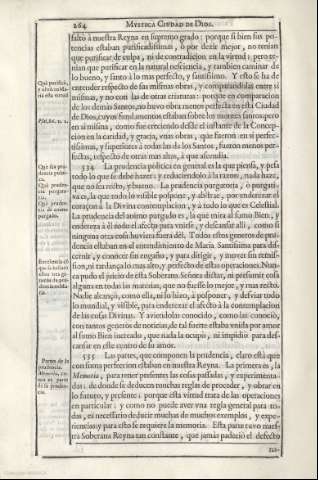 264 MYSTICA CIUDAD DE DIOS.
faltò à nuestra Reyna en supremo grado: porque si bien sus po-
tencias estaban purificadissimas, ò por dezir mejor, no tenian
que purificar de culpa, ni de contradicion en la virtud; pero te-
nian que purificar en la natural nesciencia, y tambien caminar de
lo bueno, y santo à lo mas perfecto, y santissimo. Y esto se ha de
entender respecto de sus mismas obras, y comparandolas entre si
mismas, y no con las de otras criaturas: porque en comparacion
de los demàs Santos, no huvo obra menos perfecta en esta Ciudad
de Dios, cuyos fundamentos estaban sobre los montes santos; pero
en si misma, como fue creciendo desde el instante de la Concep-
cion en la caridad, y gracia, unas obras, que fueron en si perfec-
tissimas, y superiores à todas las de los Santos, fueron menos per-
fectas, respecto de otras mas altas, à que ascendia.
534 La prudencia politica en general es la que piensa, y pesa
todo lo que se debe hazer: y reduciendolo à la razon, nada haze,
que no sea recto, y bueno. La prudencia purgatoria, ò purgati-
va es, la que todo lo visible pospone, y abstrae, por enderezar el
coraçon à la Divina contemplacion, y à todo lo que es Celestial.
La prudencia del animo purgado es, la que mira al sumo Bien, y
endereza à èl todo el afecto para unirse, y descansar allí, como si
ninguna otra cosa huviera fuera dèl. Todos estos generos de pru-
dencia estaban en el entendimiento de Maria Santissima para dis-
cernir, y conocer sin engaño, y para dirigir, y mover sin remis-
sion, ni tardança lo mas alto, y perfecto de estas operaciones. Nun-
ca pudo el juicio de esta Soberana Señora dictar, ni presumir cosa
alguna en todas las materias, que no fuesse lo mejor, y mas recto.
Nadie alcançò, como ella, ni lo hizo, à posponer, y desviar todo
lo mundial, y visible, para enderezar el afecto à la contemplacion
de las cosas Divinas. Y aviendolas conocido, como las conociò,
con tantos generos de noticias, de tal suerte estaba unida por amor
al sumo Bien increado, que nada la ocupò, ni impidiò para des-
cansar en este centro de su amor.
535 Las partes, que componen la prudencia, claro està que
con suma perfeccion estaban en nuestra Reyna. La primera es, la
Memoria, para tener presentes las cosas passadas, y experimenta-
das: de donde se deducen muchas reglas de proceder, y obrar en
lo futuro, y presente: porque esta virtud trata de las operaciones
en particular: y como no puede aver una regla general para to-
das, es necessario deducir muchas de muchos exemplos, y expe-
riencias: y para esto se requiere la memoria. Esta parte tuvo nues-
tra Soberana Reyna tan constante, que jamàs padeciò el defecto
Psal. 86. v. 1.
Partes de la
prudencia.